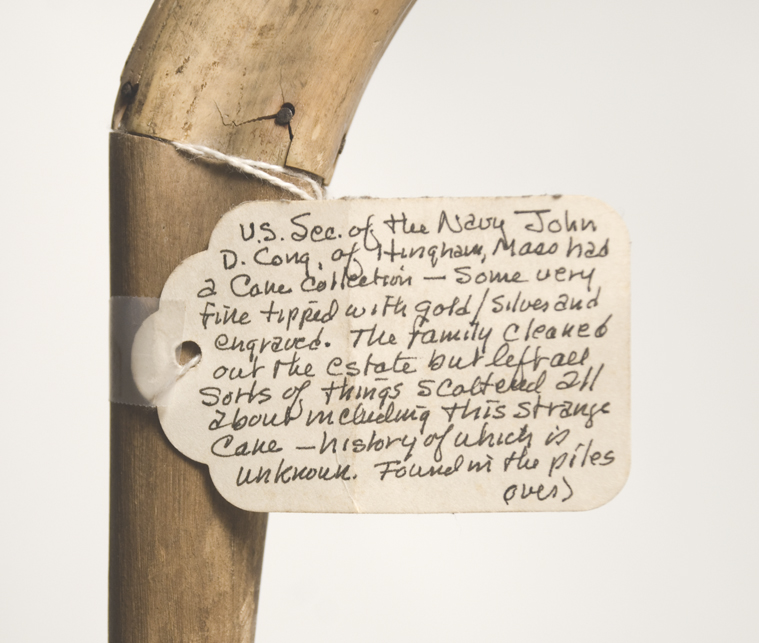 U.S. Sec. of the Navy John
D. Cong, of Hingham, Mass had
a Cane Collection — Some very
fine tipped with gold/silver and
engraved. The family cleaned
out the estate but left all
sorts of things scattered all
about including this strange
Cane — history of which is
unknown. Found in the piles
over)